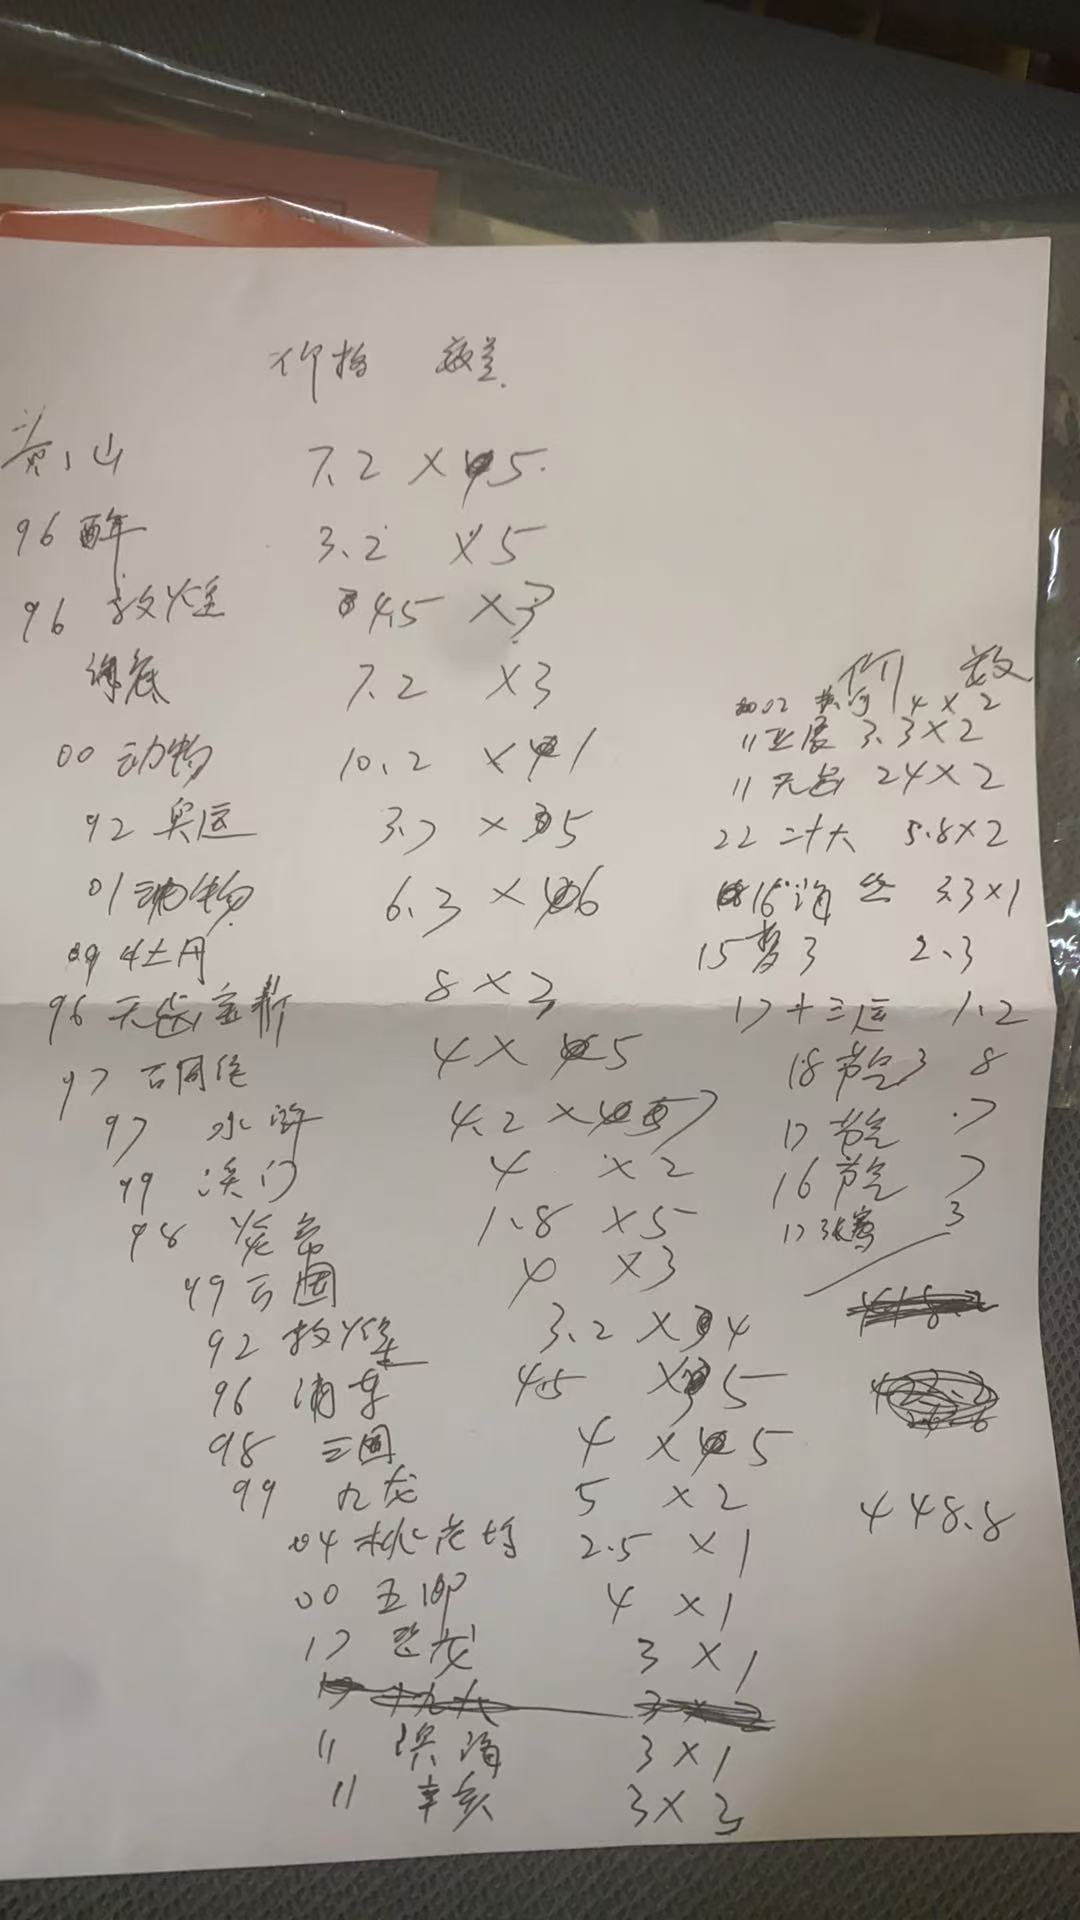 价格 数量
黄山 7.2 × 5
96 酉年 3.2 × 5
96 敦煌 4.5 × 3
海底 7.2 × 3
00 动物 10.2 × 1
92 奥运 3.7 × 5
01 动物 6.3 × 6
09 牡丹 8 × 3
96 天安宝鼎
97 4 × 5
97 水浒 4.2 × 5
99 澳门 4 × 2
98 1.8 × 5
99 万国 4 × 3
92 敦煌 3.2 × 4
96 浦东 4.5 × 5
98 三国 4 × 5
99 九龙 5 × 2
04 桃花坞 2.5 × 1
00 五 4 × 1
17 恐龙 3 × 1
11 珠海 3 × 1
11 辛亥 3 × 3
价 数
4 × 2
11 亚展 3.3 × 2
11 24 × 2
22 二十大 5.8 × 2
16 海丝 3.3 × 1
15 3 2.3
17 十三运 1.2
18 节气3 8
17 节气 7
16 节气 7
17 张骞 3
448.8